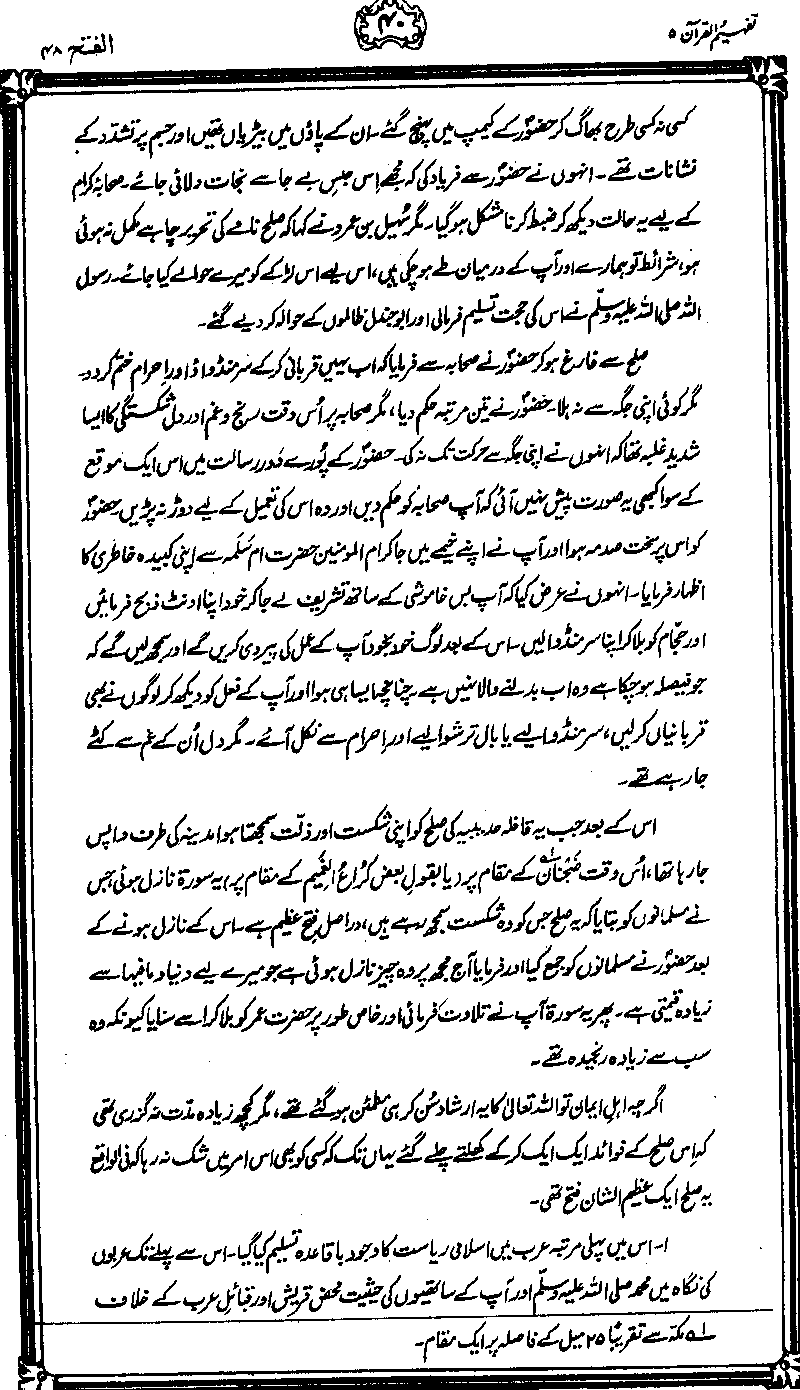 تفہیم القرآن ۵
۴۰
الفتح ۴۸
کسی نہ کسی طرح بھاگ کر حضورؐ کے کیمپ میں پہنچ گئے۔ ان کے پاؤں میں بیڑیاں تھیں اور جسم پر تشدد کے
نشانات تھے۔ انہوں نے حضورؐ سے فریاد کی کہ مجھے اس حبسِ بے جا سے نجات دلائی جائے۔ صحابہ کرام
کے لیے یہ حالت دیکھ کر ضبط کرنا مشکل ہو گیا۔ مگر سُہیل بن عمرو نے کہا کہ صلح نامے کی تحریر چاہے مکمل نہ ہوئی
ہو، شرائط تو ہمارے اور آپ کے درمیان طے ہو چکی ہیں، اس لیے اس لڑکے کو میرے حوالے کیا جائے۔ رسول
اللہ صلی اللہ علیہ وسلّم نے اس کی حجت تسلیم فرمالی اور ابو جندل ظالموں کے حوالہ کر دیے گئے۔
صلح سے فارغ ہو کر حضورؐ نے صحابہ سے فرمایا کہ اب یہیں قربانی کر کے سر منڈواؤ اور اِحرام ختم کر دو۔
مگر کوئی اپنی جگہ سے نہ ہلا۔ حضورؐ نے تین مرتبہ حکم دیا، مگر صحابہ پر اُس وقت رنج و غم اور دل شکستگی کا ایسا
شدید غلبہ تھا کہ انہوں نے اپنی جگہ سے حرکت تک نہ کی۔ حضورؐ کے پُورے دَورِ رسالت میں اس ایک موقع
کے سوا کبھی یہ صورت پیش نہیں آئی کہ آپ صحابہ کو حکم دیں اور وہ اس کی تعمیل کے لیے دوڑ نہ پڑیں۔ حضورؐ
کو اس پر سخت صدمہ ہوا اور آپ نے اپنے خیمے میں جا کر ام المومنین حضرت ام سَلَمہ سے اپنی کبیدہ خاطری کا
اظہار فرمایا۔ انہوں نے عرض کیا کہ آپ بس خاموشی کے ساتھ تشریف لے جا کر خود اپنا اونٹ ذبح فرمائیں
اور حجام کو بلا کر اپنا سر منڈوا لیں۔ اس کے بعد لوگ خود بخود آپ کے عمل کی پیروی کریں گے اور سمجھ لیں گے کہ
جو فیصلہ ہو چکا ہے وہ اب بدلنے والا نہیں ہے۔ چنانچہ ایسا ہی ہوا اور آپ کے فعل کو دیکھ کر لوگوں نے بھی
قربانیاں کر لیں، سر منڈوا لیے یا بال ترشوا لیے اور اِحرام سے نکل آئے۔ مگر دل اُن کے غم سے کٹے
جا رہے تھے۔
اس کے بعد جب یہ قافلہ حدیبیہ کی صلح کو اپنی شکست اور ذلّت سمجھتا ہوا مدینہ کی طرف واپس
جا رہا تھا، اُس وقت ضَجْنان ؎۱ کے مقام پر (یا بقولِ بعض کُرَاعُ الغَمِیم کے مقام پر) یہ سورۃ نازل ہوئی جس
نے مسلمانوں کو بتایا کہ یہ صلح جس کو وہ شکست سمجھ رہے ہیں، دراصل فتح عظیم ہے۔ اس کے نازل ہونے کے
بعد حضورؐ نے مسلمانوں کو جمع کیا اور فرمایا آج مجھ پر وہ چیز نازل ہوئی ہے جو میرے لیے دنیا و مافیہا سے
زیادہ قیمتی ہے۔ پھر یہ سورۃ آپ نے تلاوت فرمائی اور خاص طور پر حضرت عمر کو بلا کر اسے سنایا کیونکہ وہ
سب سے زیادہ رنجیدہ تھے۔
اگرچہ اہلِ ایمان تو اللہ تعالیٰ کا یہ ارشاد سُن کر ہی مطمئن ہو گئے تھے، مگر کچھ زیادہ مدت نہ گزری تھی
کہ اِس صلح کے فوائد ایک ایک کر کے کھلتے چلے گئے یہاں تک کہ کسی کو بھی اس امر میں شک نہ رہا کہ فی الواقع
یہ صلح ایک عظیم الشان فتح تھی۔
۱۔ اس میں پہلی مرتبہ عرب میں اسلامی ریاست کا وجود باقاعدہ تسلیم کیا گیا۔ اس سے پہلے تک عربوں
کی نگاہ میں محمد صلی اللہ علیہ وسلّم اور آپ کے ساتھیوں کی حیثیت محض قریش اور قبائلِ عرب کے خلاف
؎۱ مکّہ سے تقریباً ۲۵ میل کے فاصلہ پر ایک مقام۔